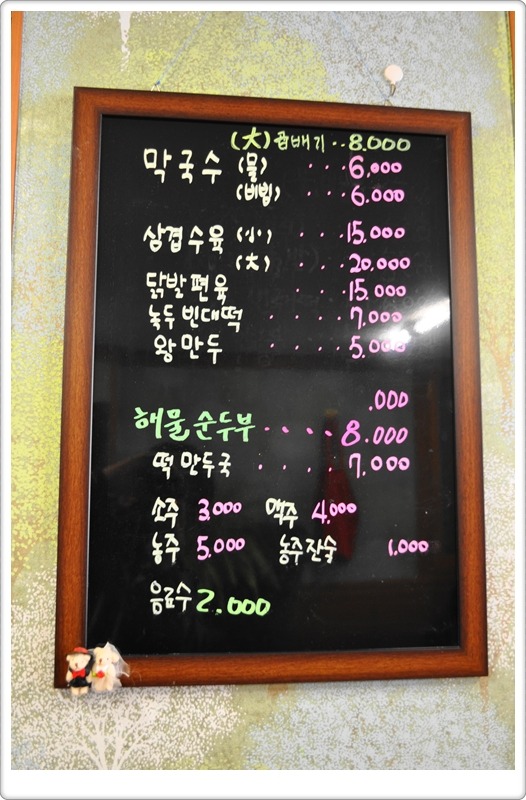 (大) 곱배기 ‥ 8.000
막국수 (물) ... 6,000
(비빔) ... 6.000
삼겹수육 (小) ... 15.000
(大) ... 20.000
닭발편육 ... 15.000
녹두빈대떡 .... 7,000
왕만두 .... 5,000
.000
해물순두부 .... 8.000
떡만두국 .... 7,000
소주 3.000 맥주 4,000
농주 5.000 농주잔술 1.000
음료수 2.000